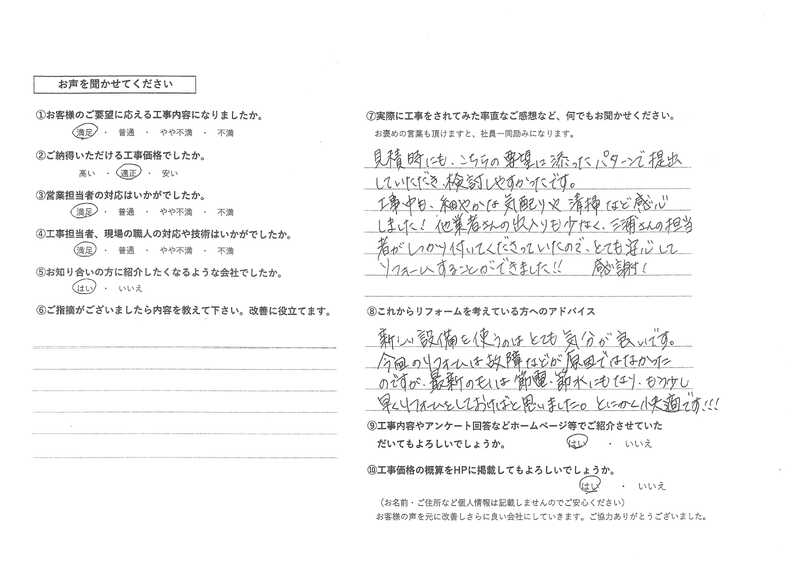 お声を聞かせてください
①お客様のご要望に応える工事内容になりましたか。
満足 ・ 普通 ・ やや不満 ・ 不満
②ご納得いただける工事価格でしたか。
高い ・ 適正 ・ 安い
③営業担当者の対応はいかがでしたか。
満足 ・ 普通 ・ やや不満 ・ 不満
④工事担当者、現場の職人の対応や技術はいかがでしたか。
満足 ・ 普通 ・ やや不満 ・ 不満
⑤お知り合いの方に紹介したくなるような会社でしたか。
はい ・ いいえ
⑥ご指摘がございましたら内容を教えて下さい。改善に役立てます。
⑦実際に工事をされてみた率直なご感想など、何でもお聞かせください。
お褒めの言葉も頂けますと、社員一同励みになります。
見積時にも、こちらの要望に添ったパターンで提出
していただき、検討しやすかったです。
工事中も、細やかな気配りや清掃など感心
しました！他業者さんの出入りも少なく、三浦さんの担当
者がしっかり付いてくださっていたので、とても安心して
リフォームすることができました!! 感謝！
⑧これからリフォームを考えている方へのアドバイス
新しい設備を使うのはとても気分が良いです。
今回のリフォームは故障などが原因ではなかった
のですが、最新のものは節電・節水にもなり、もう少し
早くリフォームをしておけばと思いました。とにかく快適です!!!
⑨工事内容やアンケート回答などホームページ等でご紹介させていた
だいてもよろしいでしょうか。 はい ・ いいえ
⑩工事価格の概算をHPに掲載してもよろしいでしょうか。
はい ・ いいえ
（お名前・ご住所など個人情報は記載しませんのでご安心ください）
お客様の声を元に改善しさらに良い会社にしていきます。ご協力ありがとうございました。